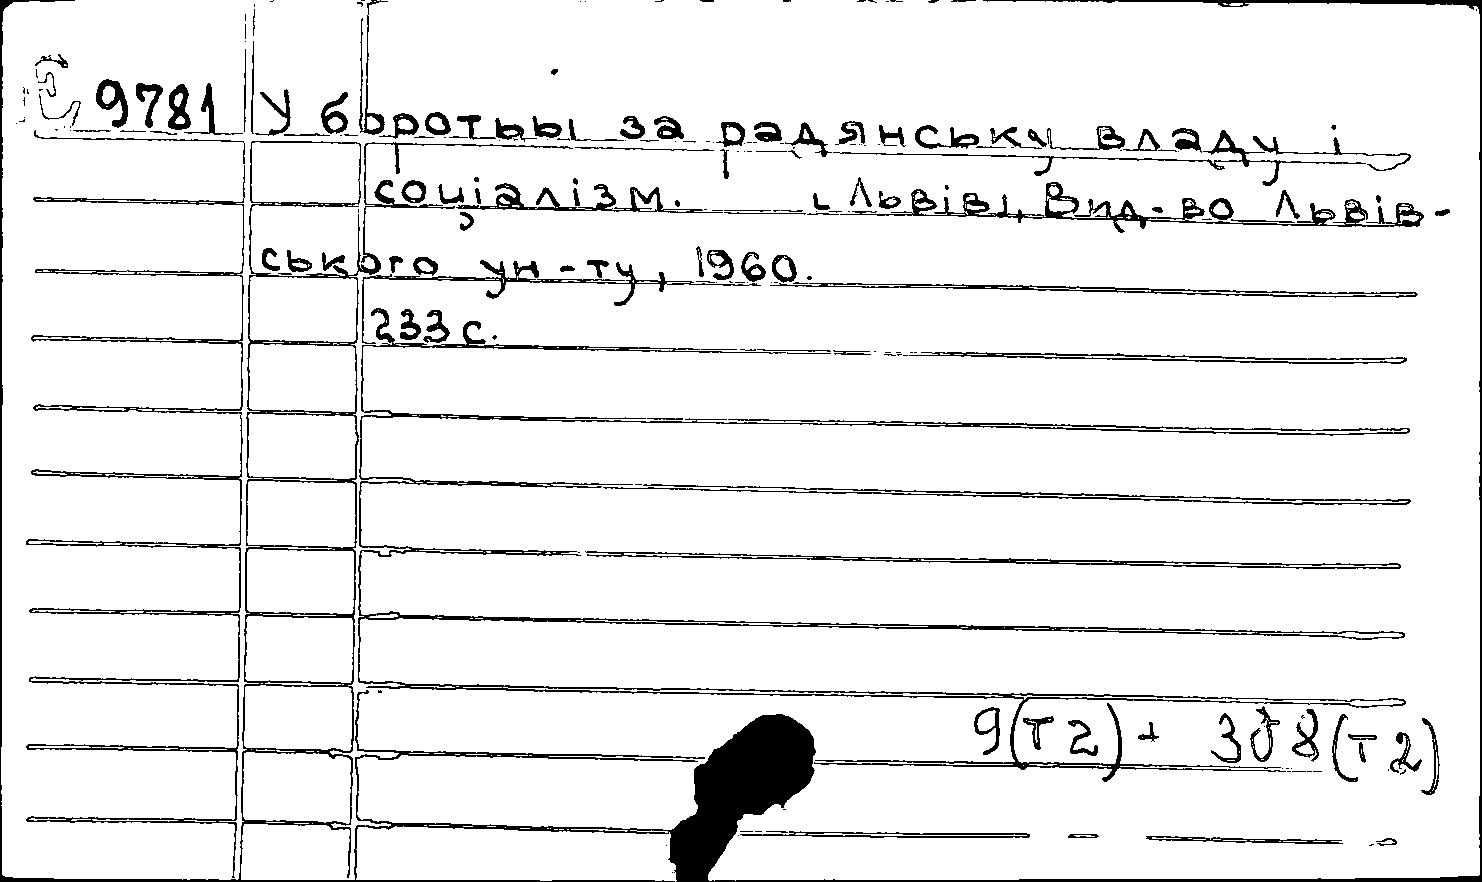 9781 У боротьбі за радянську владу і
соціалізм. Львів, Вид-во Львів-
ського ун-ту, 1960.
233 с.
9(Т2)+ 3Ј8(Т2)